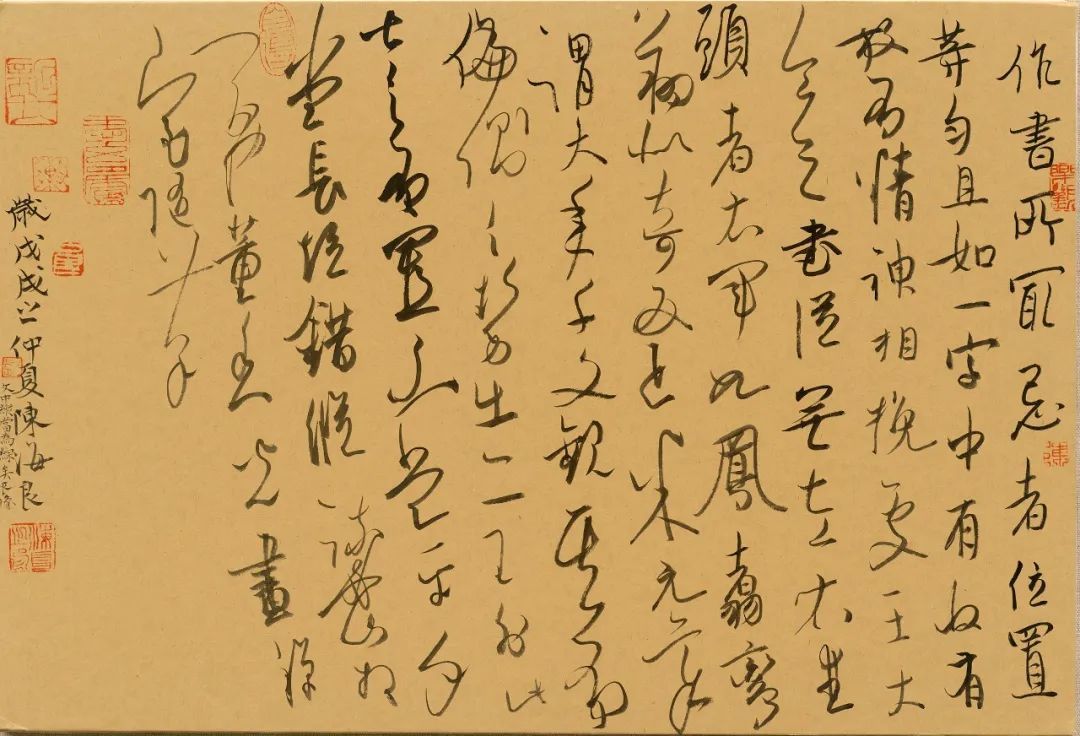 作書所最忌者位置
等勻且如一字中有收有
放有精神相挽處王大
令之書從無左右並
頭者右軍如鳳翥鸞
翔似奇反正米元章
謂大年千文觀其有
偏側之勢出二王外此
皆言布置不當平勻
當長短錯綜疏密相
間也董其昌畫禪
室隨筆
歲戊戌之仲夏陳海良